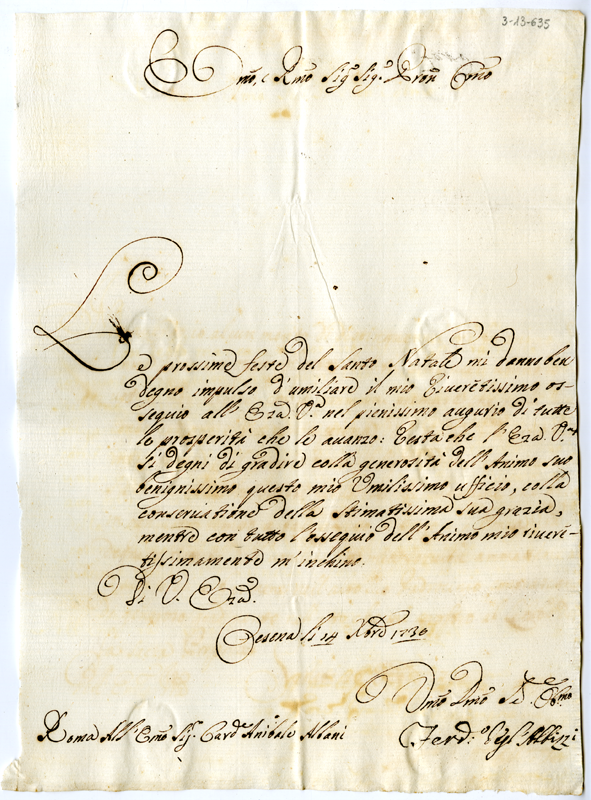 3-13-635
Emo, e Rmo Sig.r Sig.r Pron Cmo
Le prossime feste del Santo Natale mi danno ben
degno impulso d'umiliare il mio riverētissimo os=
sequio all' Eza. Va. nel pienissimo augurio di tutte
le prosperità che le avanzo: Resta che l'Eza. Va.
si degni di gradire colla generosità dell'Animo suo
benignissimo questo mio Umilissimo ufficio, colla
conservatione della Stimatissima sua grazia,
mentre con tutto l'ossequio dell'Animo mio riverē-
tissimamente m'inchino.
Di V. Eza.
Cesena li 14 Xbre 1730
Umo Dmo Se. Obmo
Roma All'Emo Sig. Card. Anibale Albani
Ferd.o Albizzi